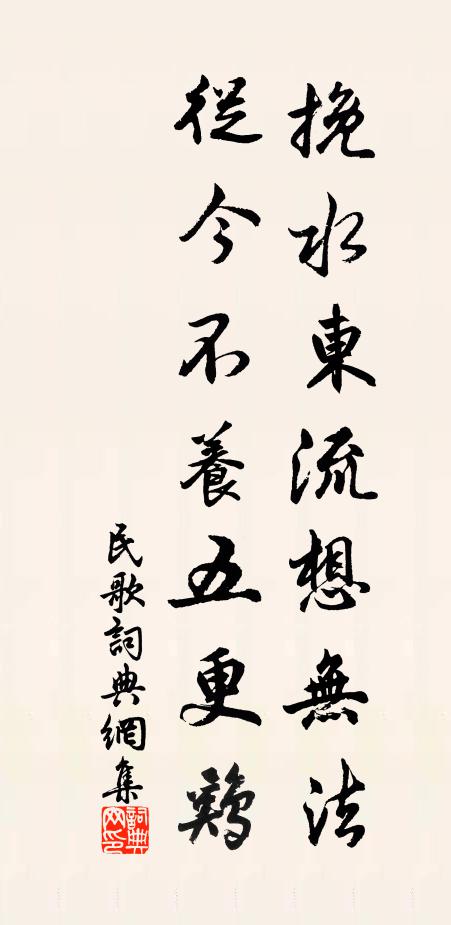 挽水東流想無法
從今不養五更鷄
民歌詞典網集
詞典
网印